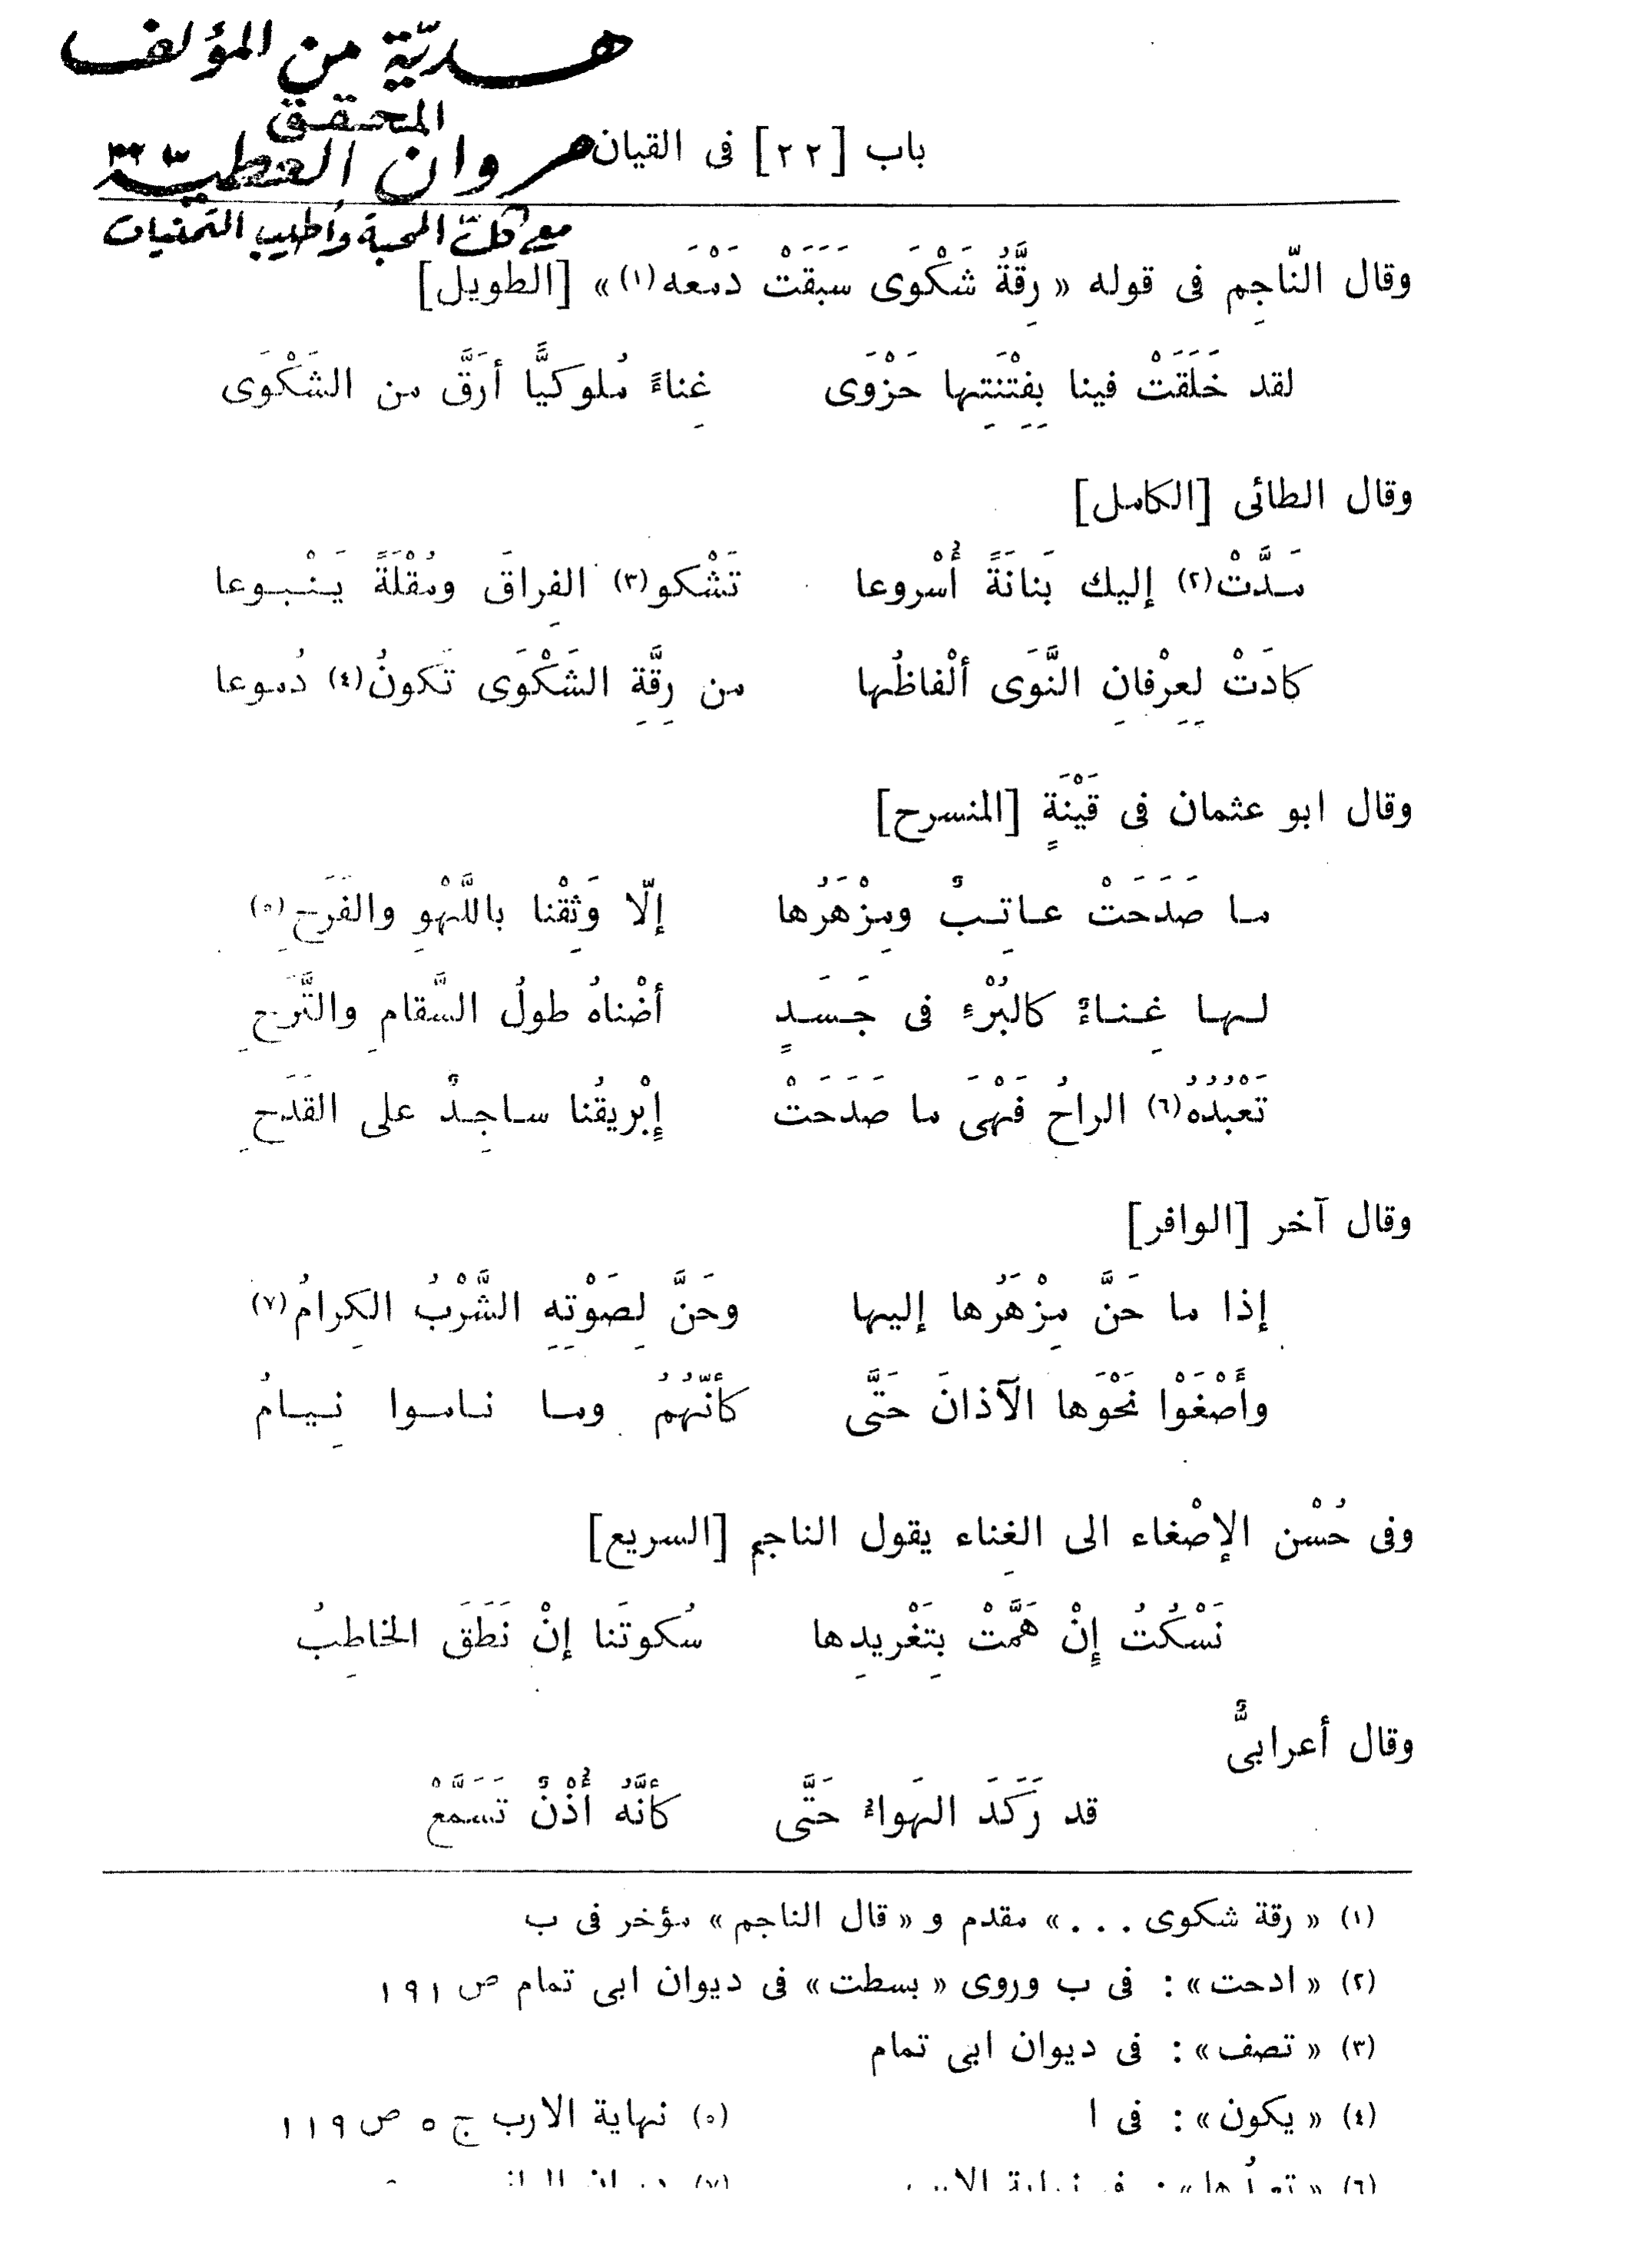 هديّة من المؤلف
المحقق
مروان العطيّة
مع كلّ المحبة وأطيب التمنيات
باب [٢٢] فى القيان
وقال النّاجِم فى قوله « رِقَّةُ شَكْوَى سَبَقَتْ دَمْعَه(١)» [الطويل]
لقد خَلَقَتْ فينا بِفِتْنَتِها حَزْوَى غِناءً مُلوكيًّا أرَقَّ من الشَكْوَى
وقال الطائى [الكامل]
مَدَّتْ(٢) إليك بَنانَةً أُسْروعا تَشْكو(٣) الفِراقَ ومُقْلَةً يَنْبوعا
كادَتْ لِعِرْفانِ النَّوَى ألْفاظُها من رِقَّةِ الشَكْوَى تَكونُ(٤) دُموعا
وقال ابو عثمان فى قَيْنَةٍ [المنسرح]
ما صَدَحَتْ عاتِبٌ ومِزْهَرُها إلّا وَثِقْنا باللَّهْوِ والفَرَحِ(٥)
لها غِناءٌ كالبُرْءِ فى جَسَدٍ أضْناهُ طولُ السَّقامِ والتَّرَحِ
تَعْبُدُهُ(٦) الراحُ فَهْىَ ما صَدَحَتْ إِبْريقُنا ساجِدٌ على القَدَحِ
وقال آخر [الوافر]
إذا ما حَنَّ مِزْهَرُها إليها وحَنَّ لِصَوْتِهِ الشَّرْبُ الكِرامُ(٧)
وأَصْغَوْا نَحْوَها الآذانَ حَتَّى كأنّهُمُ وما ناموا نِيامُ
وفى حُسْن الإصْغاء الى الغِناء يقول الناجم [السريع]
نَسْكُتُ إِنْ هَمَّتْ بِتَغْريدِها سُكوتَنا إنْ نَطَقَ الخاطِبُ
وقال أعرابىٌّ
قد رَكَدَ الهَواءُ حَتَّى كأنَّهُ أُذْنٌ تَسَمَّعْ
(١) « رقة شكوى ...» مقدم و « قال الناجم » مؤخر فى ب
(٢) « ادحت » : فى ب وروى « بسطت » فى ديوان ابى تمام ص ١٩١
(٣) « تصف » : فى ديوان ابى تمام
(٤) « يكون » : فى ا (٥) نهاية الارب ج ٥ ص ١١٩
(٦) « تعبدها » : فى نهاية الارب (٧)